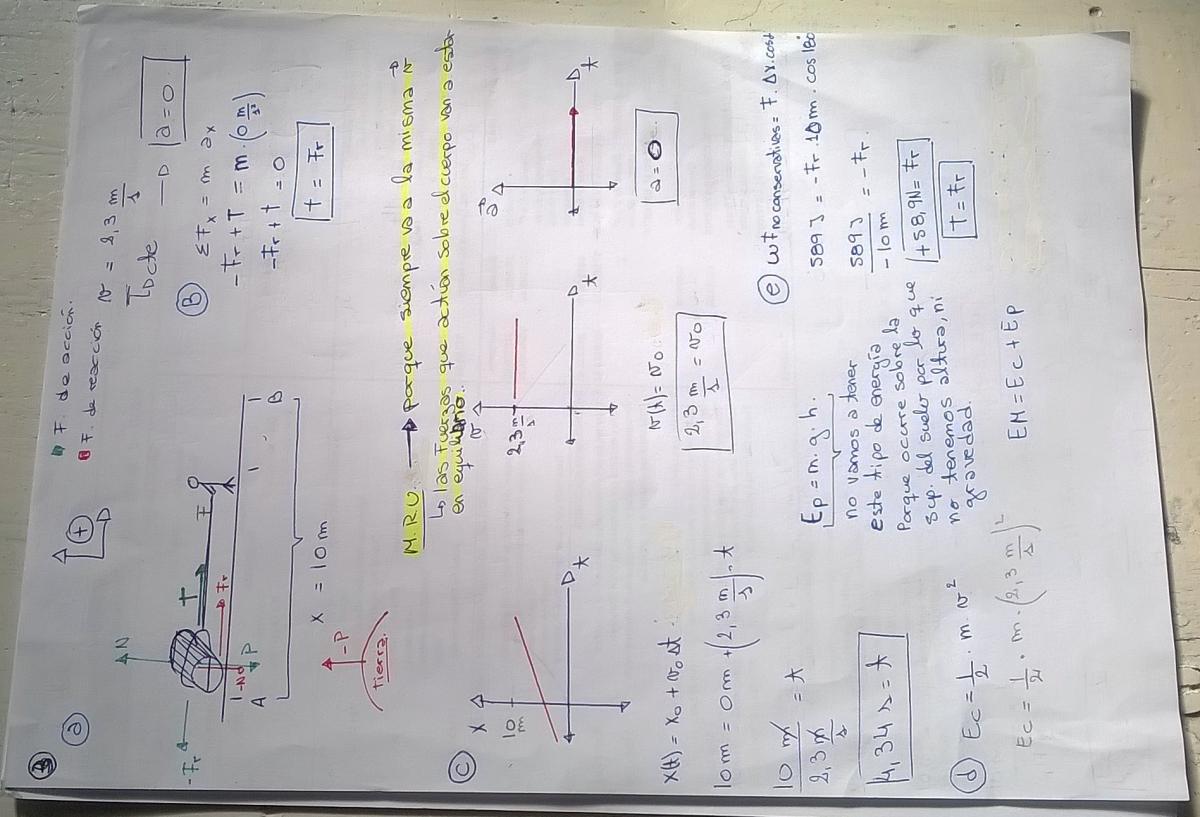 a
+
F. de acción.
F. de reacción
N
-Fr
T
F
Fr
P
-N
A
B
x = 10 m
-P
tierra.
v = 2,3 m/s
cte
a = 0
B
ΣFx = m ax
-Fr + T = m · (0 m/s²)
-Fr + T = 0
T = Fr
M.R.U. → porque siempre va a la misma v
↳ las fuerzas que actúan sobre el cuerpo van a estar
en equilibrio.
C
x
10 m
t
v
2,3 m/s
t
a
t
x(t) = x0 + v0 Δt
10 m = 0 m + (2,3 m/s) · t
10 m / 2,3 m/s = t
4,34 s = t
v(t) = v0
2,3 m/s = v0
a = 0
d
Ec = 1/2 · m · v²
Ec = 1/2 · m · (2,3 m/s)²
Ep = m · g · h.
no vamos a tener
este tipo de energía
Porque ocurre sobre la
sup. del suelo por lo que
no tenemos altura, ni
gravedad.
EM = Ec + Ep
e
Wf no conservativas = F · Δx · cos
589 J = -Fr · 10 m · cos 180
589 J / -10 m = -Fr
+58,9N = Fr
T = Fr